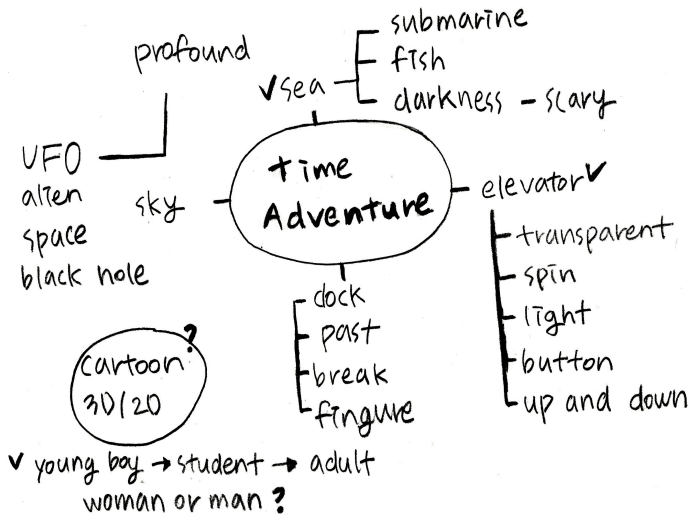 profound
submarine
✓sea
fish
darkness - scary
UFO
alien
space
black hole
sky
time
Adventure
elevator✓
transparent
spin
light
button
up and down
clock
past
break
fingure
cartoon?
3D/2D
✓ young boy → student → adult
woman or man?